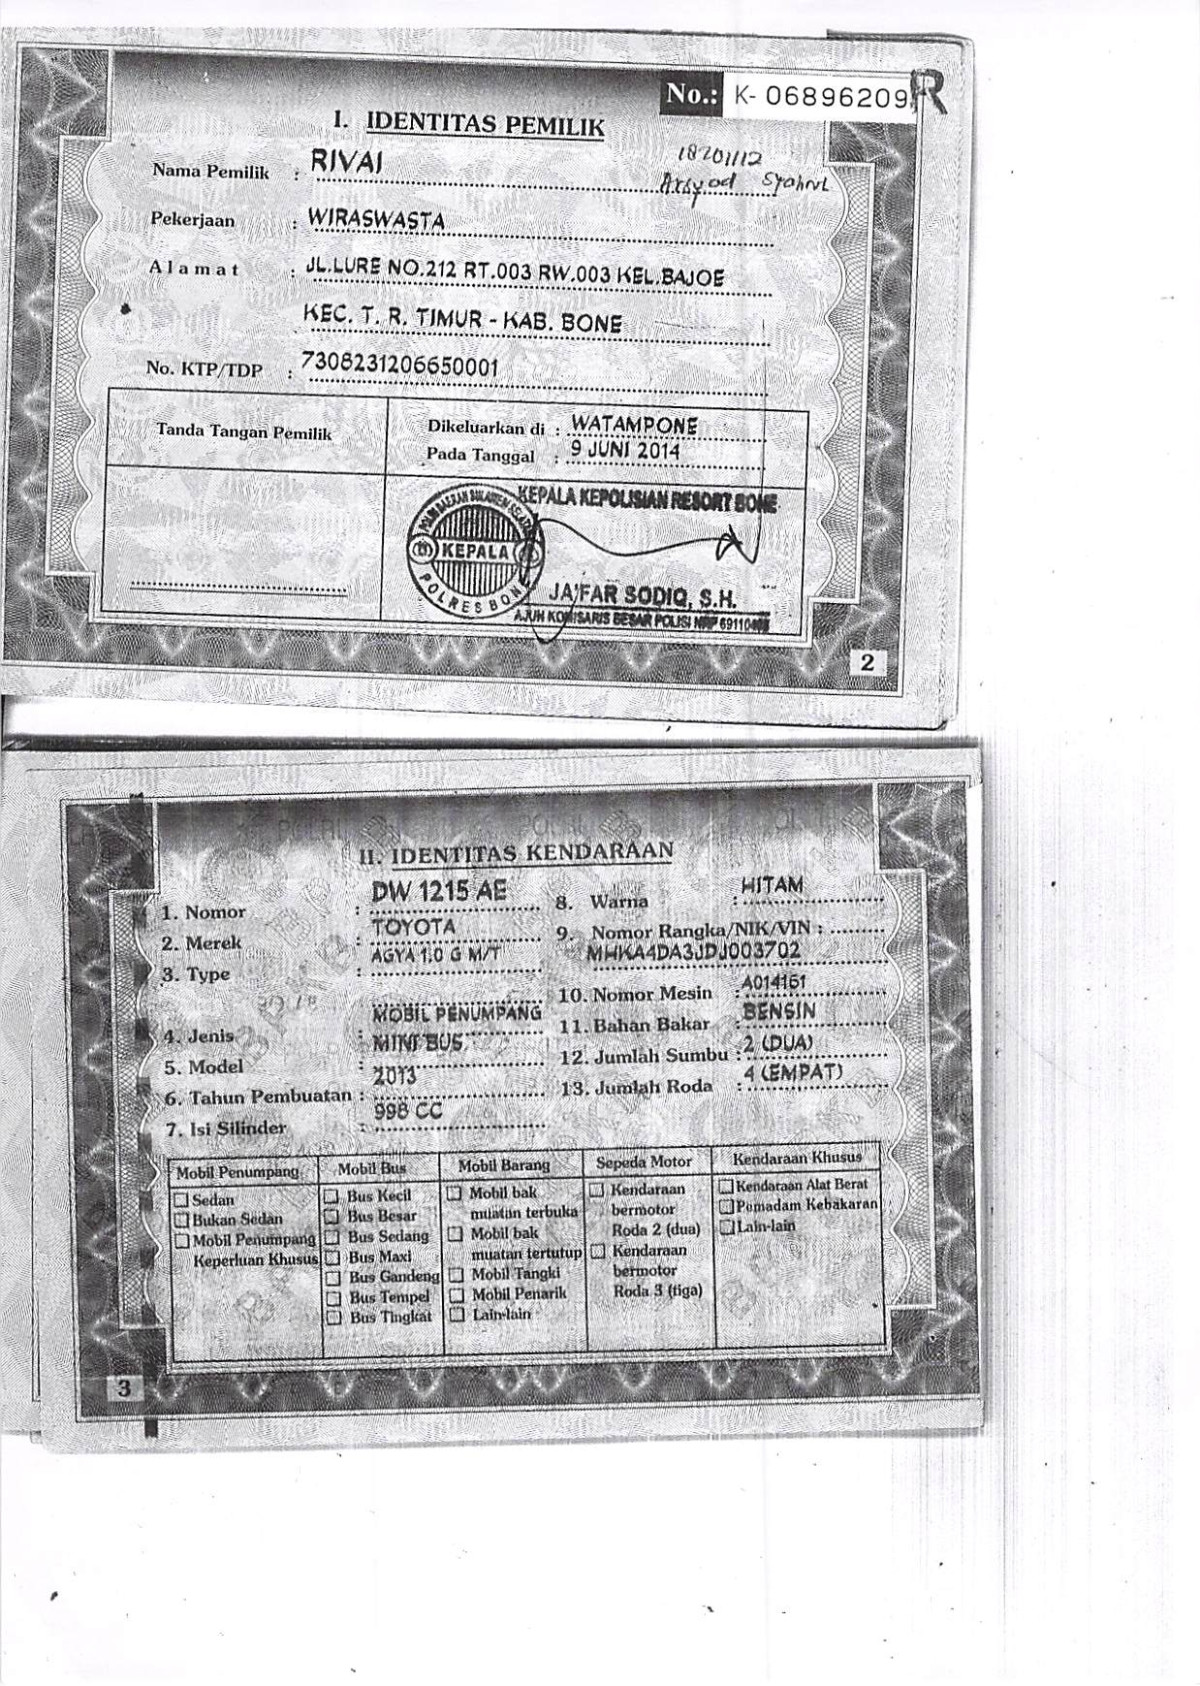 No.: K- 06896209 R
I. IDENTITAS PEMILIK
18201112
Nama Pemilik : RIVAI
Arsyad Syahrul
Pekerjaan : WIRASWASTA
Alamat : JL.LURE NO.212 RT.003 RW.003 KEL.BAJOE
KEC. T. R. TIMUR - KAB. BONE
No. KTP/TDP : 7308231206650001
Tanda Tangan Pemilik
Dikeluarkan di : WATAMPONE
Pada Tanggal : 9 JUNI 2014
KEPALA KEPOLISIAN RESORT BONE
KEPALA
POLRES BONE
JA'FAR SODIQ, S.H.
AJUN KOMISARIS BESAR POLISI NRP
2
II. IDENTITAS KENDARAAN
1. Nomor : DW 1215 AE
2. Merek : TOYOTA
3. Type : AGYA 1.0 G M/T
4. Jenis : MOBIL PENUMPANG
5. Model : MINI BUS
6. Tahun Pembuatan : 2013
7. Isi Silinder : 998 CC
8. Warna : HITAM
9. Nomor Rangka/NIK/VIN :
MHKA4DA3JDJ003702
10. Nomor Mesin : A014161
11. Bahan Bakar : BENSIN
12. Jumlah Sumbu : 2 (DUA)
13. Jumlah Roda : 4 (EMPAT)
Mobil Penumpang
Sedan
Bukan Sedan
Mobil Penumpang
Keperluan Khusus
Mobil Bus
Bus Kecil
Bus Besar
Bus Sedang
Bus Maxi
Bus Gandeng
Bus Tempel
Bus Tingkat
Mobil Barang
Mobil bak
mulatan terbuka
Mobil bak
muatan tertutup
Mobil Tangki
Mobil Penarik
Lain-lain
Sepeda Motor
Kendaraan
bermotor
Roda 2 (dua)
Kendaraan
bermotor
Roda 3 (tiga)
Kendaraan Khusus
Kendaraan Alat Berat
Pemadam Kebakaran
Lain-lain
3